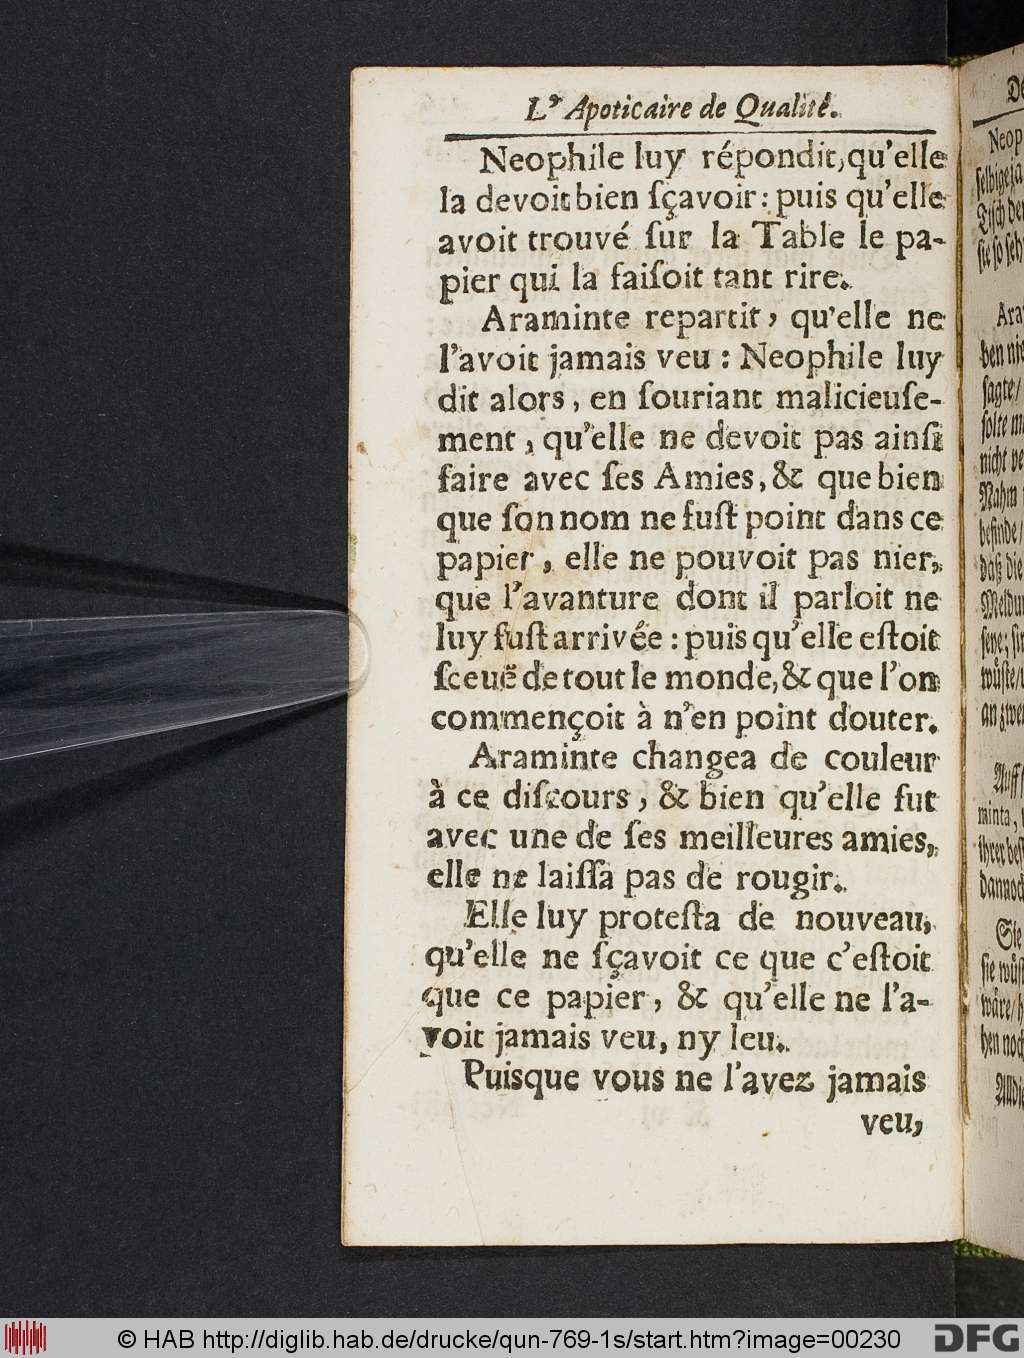 L' Apoticaire de Qualité.
Neophile luy répondit, qu'elle
la devoit bien ſçavoir: puis qu'elle
avoit trouvé ſur la Table le pa-
pier qui la faiſoit tant rire.
Araminte repartit, qu'elle ne
l'avoit jamais veu: Neophile luy
dit alors, en ſouriant malicieuſe-
ment, qu'elle ne devoit pas ainſi
faire avec ſes Amies, & que bien
que ſon nom ne fuſt point dans ce
papier, elle ne pouvoit pas nier,
que l'avanture dont il parloit ne
luy fuſt arrivée: puis qu'elle eſtoit
ſceuë de tout le monde, & que l'on
commençoit à n'en point douter.
Araminte changea de couleur
à ce diſcours, & bien qu'elle fut
avec une de ſes meilleures amies,
elle ne laiſſa pas de rougir.
Elle luy proteſta de nouveau,
qu'elle ne ſçavoit ce que c'eſtoit
que ce papier, & qu'elle ne l'a-
voit jamais veu, ny leu.
Puisque vous ne l'avez jamais
veu,
De
Neop
ſelbige ja
Tiſch der
ſie ſo ſeh
Ara
ben nie
ſagte/
ſolte m
nicht ve
Nahm
befinde/
daß die
Meldu
ſeye; ſin
wüſte/
an zwei
Auff
minta,
ihrer beſt
dannoch
Sie
ſie wüſt
wäre/
ben noch
© HAB http://diglib.hab.de/drucke/qun-769-1s/start.htm?image=00230
DFG